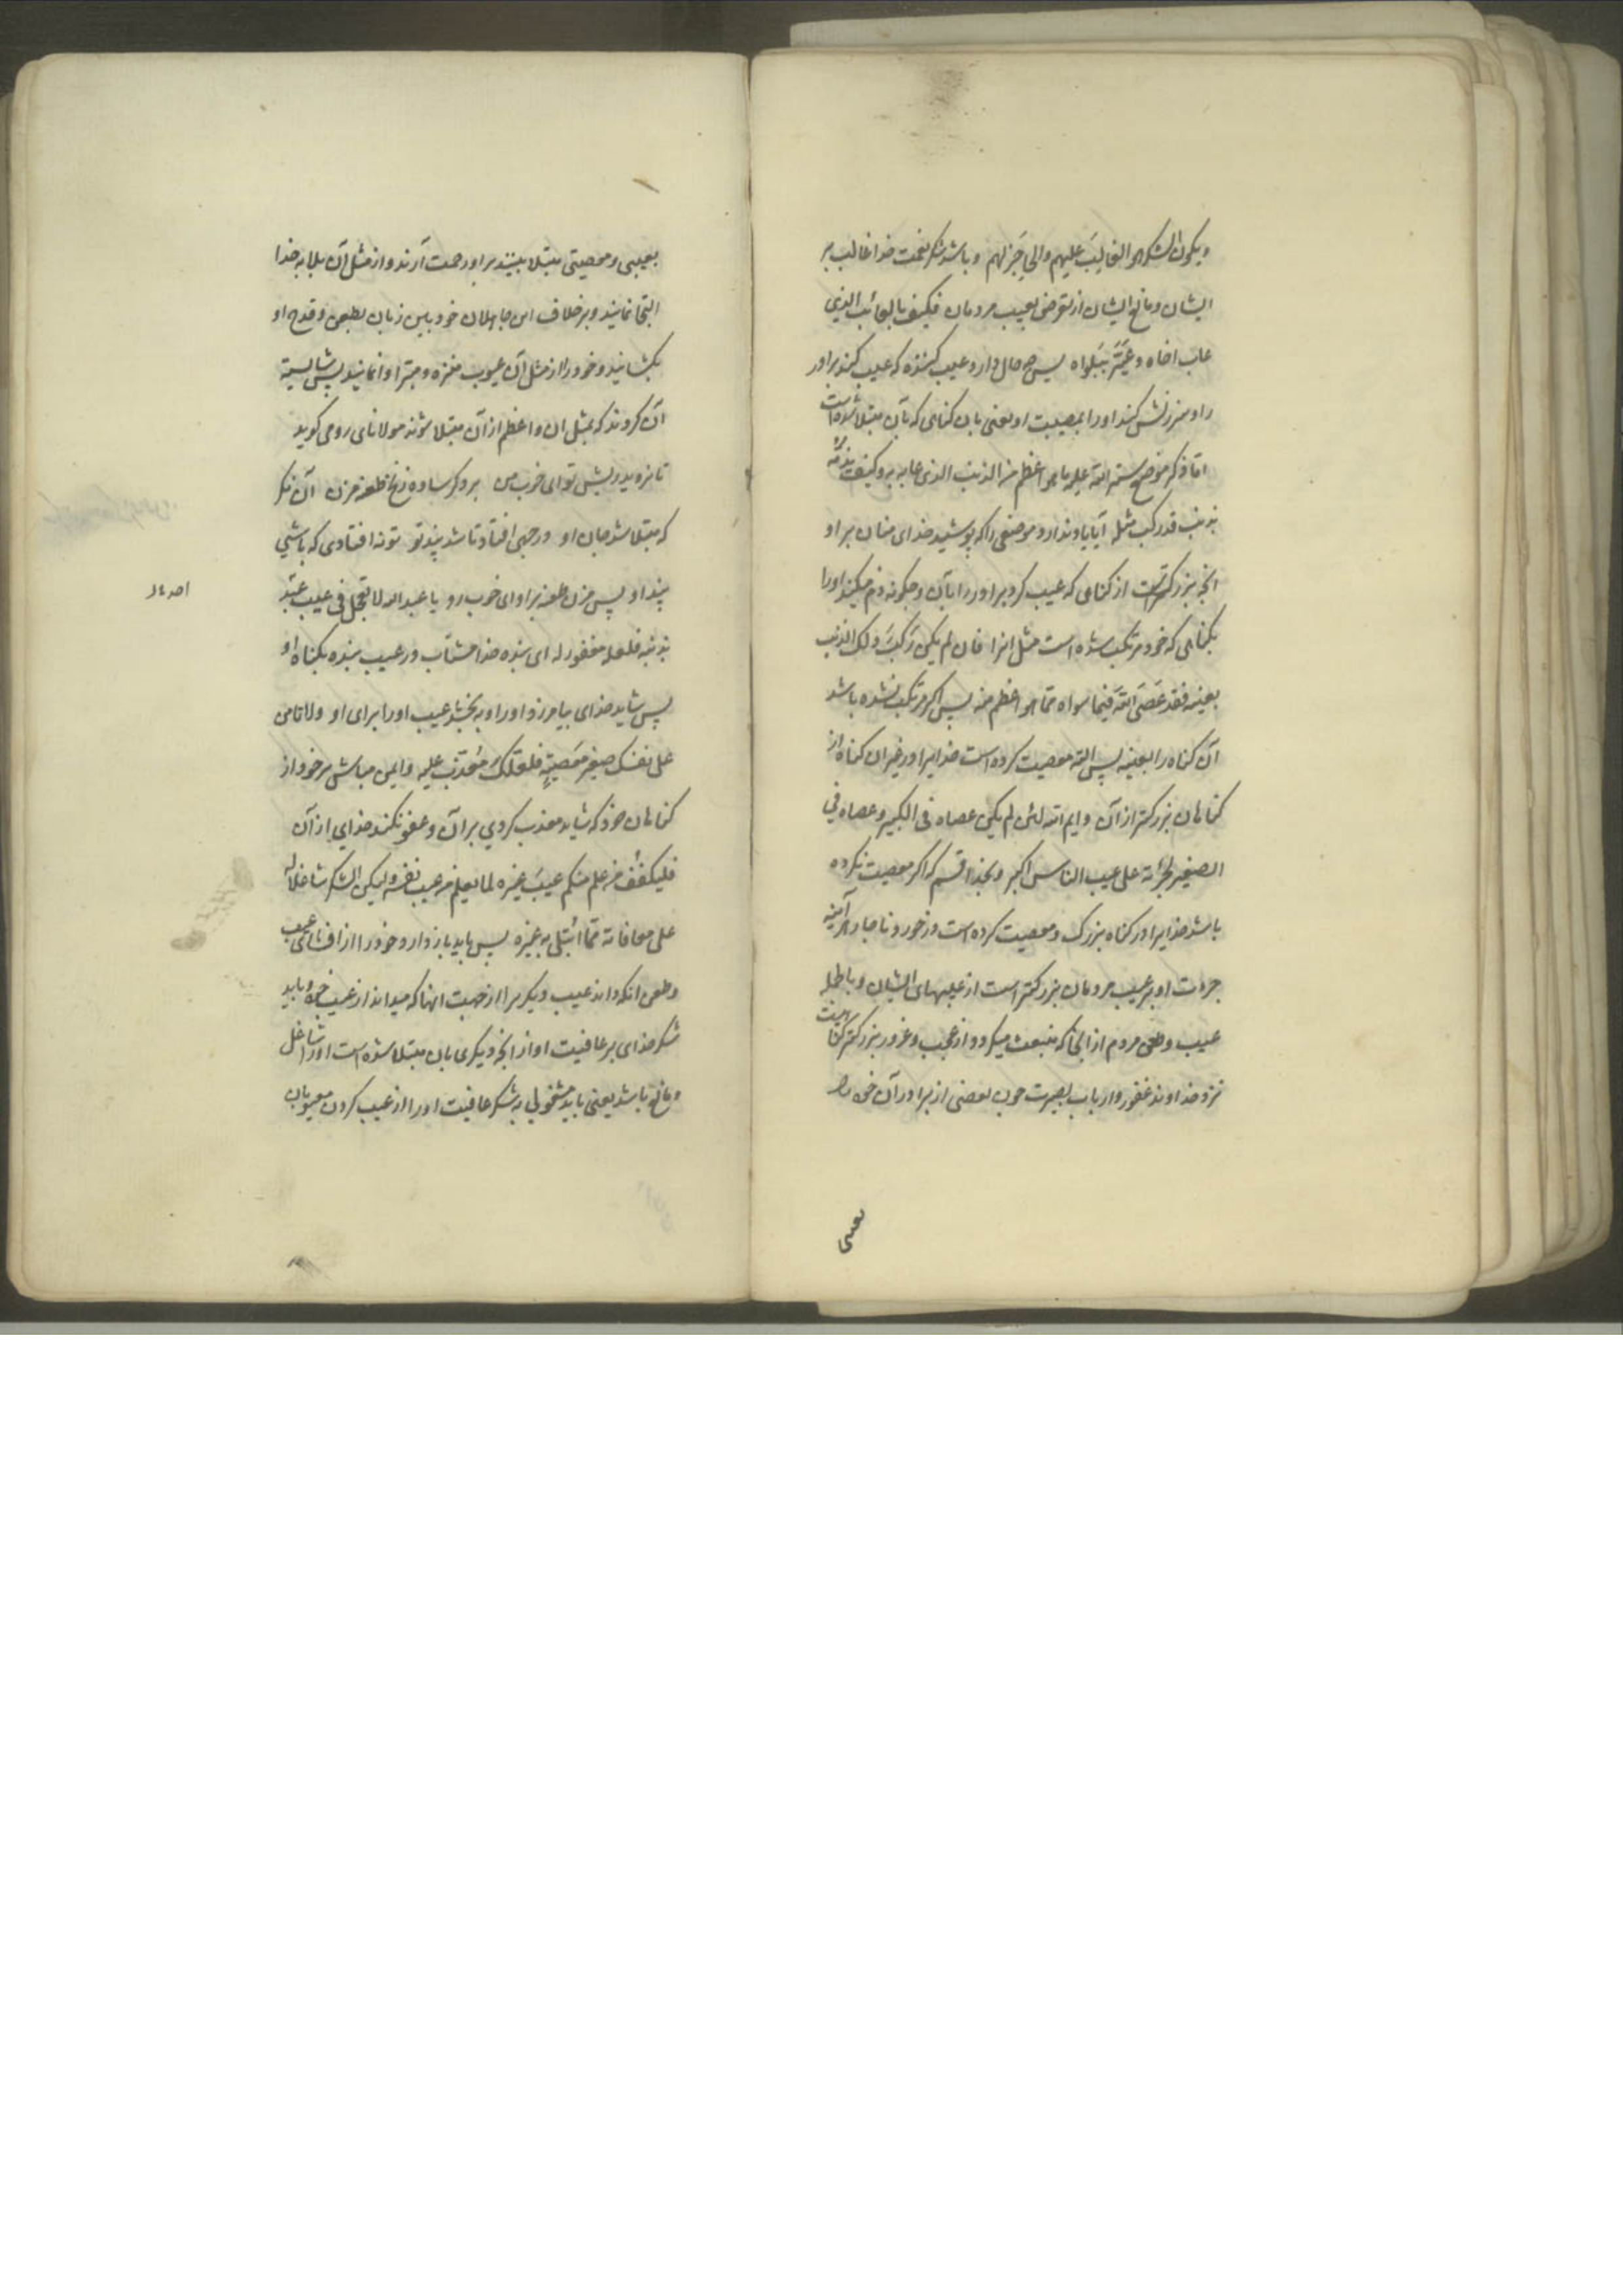 ویکون الشکر هو الغالبَ علیهم والحاجَز لهم و باشد شکر نعمت خدا غالب بر
ایشان و مانع ایشان از تعرض بعیب مردمان فکیف بالعائب الذی
عاب اخاه و عَیَّرَه بِبَلواه پس چه حال دارد عیب کننده که عیب کند برادر
را و سرزنش کند او را بمصیبت او یعنی بان کناهی که بآن مبتلا شده است
اما ذکر موضع ستر الله علیه ما هو اعظم من الذنب الذی عابه به و کیف یذمّه
بذنب قد رکب مثله آیا یاد ندارد موضعی را که پوشید خدای منان بر او
انچه بزرکتر است از کناهی که عیب کرد برادر را بآن و چکونه ذم میکند او را
بکناهی که خود مرتکب شده است مثل انرا فان لم یکن رَکِبَ ذلک الذنب
بعینه فقد عَصَی اللّهَ فیما سواه ممّا هو اعظم منه پس اکر مرتکب نشده باشد
آن کناه را بعینه پس البته معصیت کرده است خدایرا در غیر ان کناه از
کناهان بزرکتر از آن و ایم الله لئن لم یکن عصاه فی الکبیر و عصاه فی
الصغیر لجرأته علی عیب الناس اکبر و بخدا قسم که اکر معصیت نکرده
باشد خدایرا در کناه بزرک و معصیت کرده است در خورد و ناچار هر آینه
جرات او بر عیب مردمان بزرکتر است از عیبهای ایشان و باطله
عیب و طعن مردم از انجا که منبعث میکردد از عجب و غرور بزرکتر کناهیست
نزد خداوند غفور و ارباب بصیرت چون بعضی از برادران خود را
بعیبی
بعیبی و معصیتی مبتلا بینند بر او رحمت آرند و از مثل آن بلا به خدا
التجا نمایند و بر خلاف این جاهلان خودبین زبان بطعن و قدح او
بکشانید و خود را از مثل آن عیوب منزه و مبرّا وانمانید پس شایسته
آن کردند که بمثل ان و اعظم از آن مبتلا شوند مولانای رومی کوید
تا نروید ریش تو ای خوب من بر دکر ساده زنخ طعنه مزن آن نکر
که مبتلا شد جان او در چهی افتاد تا شد پند تو تو نه افتادی که باشی
پند او پس مزن طعنه بر او ای خوب رو یا عبد الله لا تعجل فی عیب عَبدٍ
بذنبه فلعله مغفور له ای بنده خدا مشتاب در عیب بنده بکناه او
پس شاید خدای بیامرزد او را و به بخشد عیب او را برای او ولا تامن
علی نفسک صغیر مَعصیَةٍ فلعلّکَ مُعَذّب علیه و ایمن مباش بر خود از
کناهان خود که شاید معذب کردی بر آن و عفو نکند خدای از آن
فلیکفُف من علم منکم عیبَ غیره لما یعلم من عیب نفسه ولیکن الشکر شاغلاً له
علی معافاته ممّا ابتُلی به غیره پس باید باز دارد خود را از افشای عیب
و طعن انکه داند عیب دیکر را از جهت انها که میداند از عیب خود و باید
شکر خدای بر عافیت او از انچه دیکری بان مبتلا شده است او را شاغل
و مانع باشد یعنی باید مشغولی به شکر عافیت او را از عیب کردن معیوبان